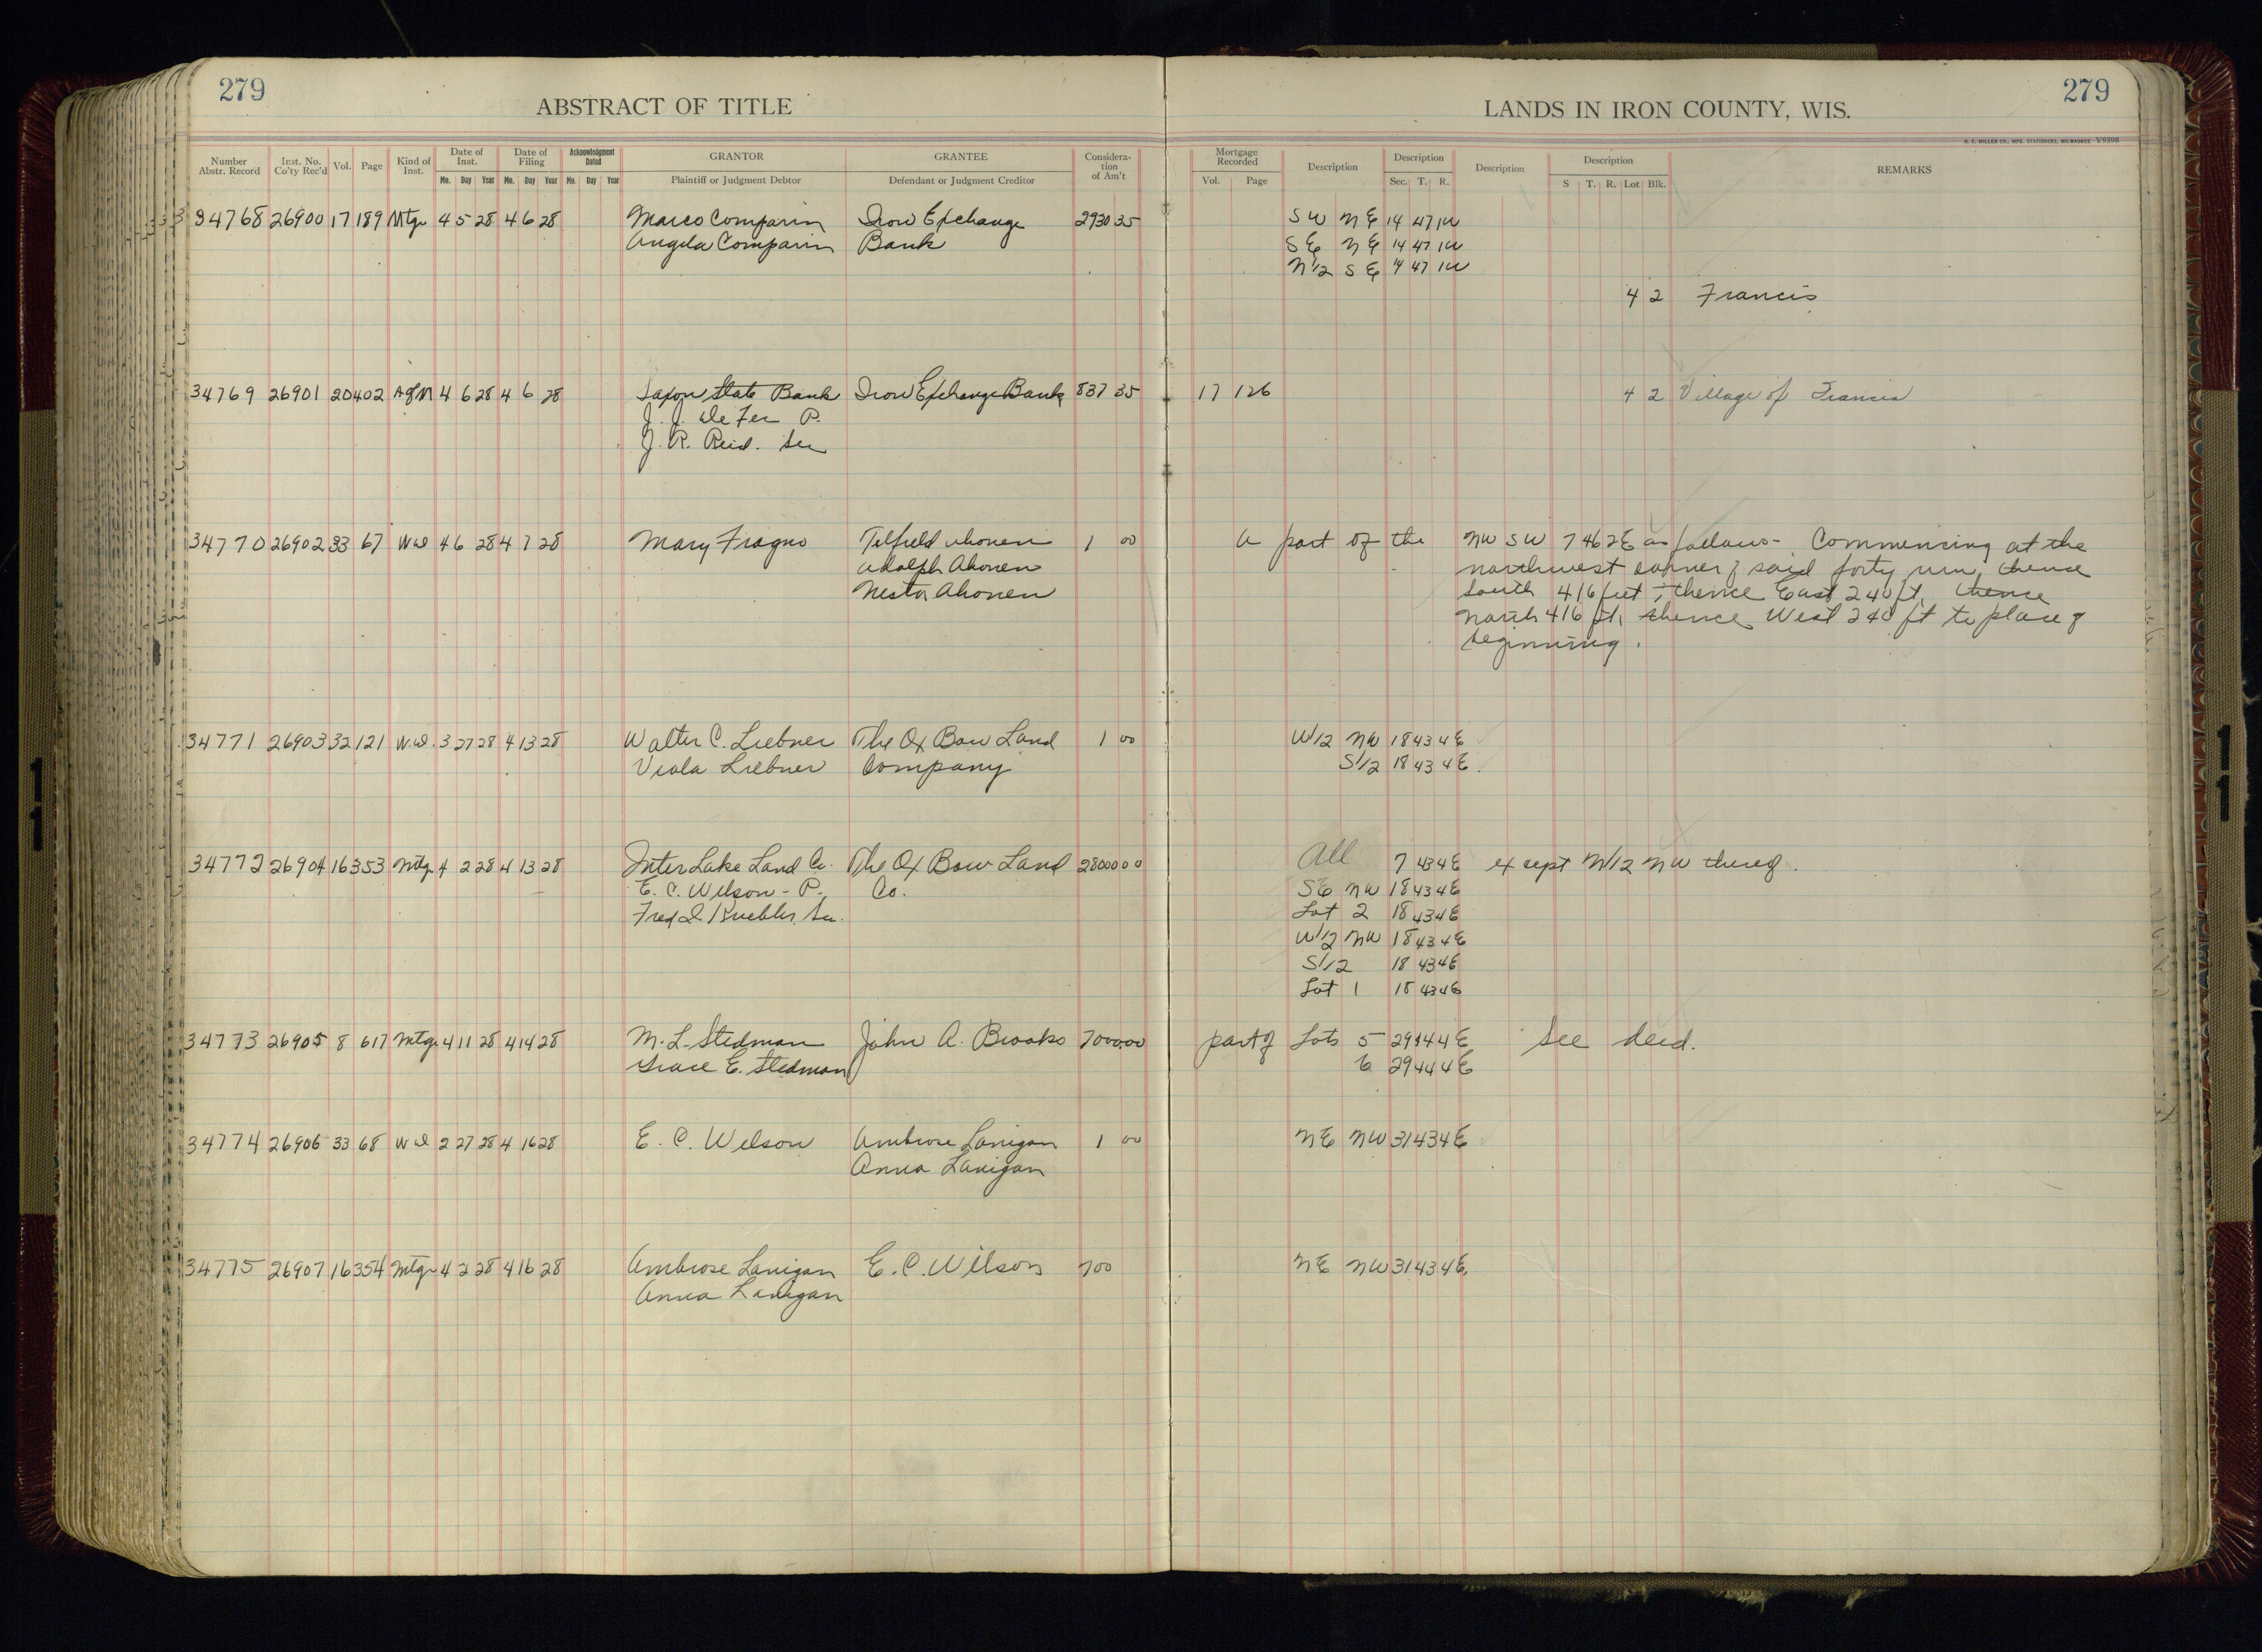 279
ABSTRACT OF TITLE
LANDS IN IRON COUNTY, WIS.
279
H. C. MILLER CO., MFG. STATIONERS, MILWAUKEE V9398
Number Abstr. Record | Inst. No. Co'ty Rec'd | Vol. | Page | Kind of Inst. | Date of Inst. Mo. Day Year | Date of Filing Mo. Day Year | Acknowledgment Dated Mo. Day Year | GRANTOR Plaintiff or Judgment Debtor | GRANTEE Defendant or Judgment Creditor | Consideration of Am't | Mortgage Recorded Vol. Page | Description | Description Sec. T. R. | Description | Description S T. R. Lot Blk. | REMARKS
34768 26900 17 189 Mtg 4 5 28 4 6 28 Marco Comparin Iron Exchange 2930 35 SW NE 14 47 1W
Angela Comparin Bank SE NE 14 47 1W
N1/2 SE 14 47 1W
4 2 Francis
34769 26901 20 402 A of M 4 6 28 4 6 28 Saxon State Bank Iron Exchange Bank 837 35 17 126 4 2 Village of Francis
J. J. De Fer P.
J. R. Reid. Sec
34770 26902 33 67 WD 4 6 28 4 7 28 Mary Fragno Ahonen 1 00 A part of the NW SW 7 46 2E as follows - Commencing at the
Adolph Ahonen northwest corner of said forty run, thence
Nestor Ahonen South 416 feet; thence East 240 ft, thence
North 416 ft, thence West 240 ft to place of
beginning.
34771 26903 32 121 W.D. 3 27 28 4 13 28 Walter C. Liebner The Ox Bow Land 1 00 W1/2 NW 18 43 4E
Viola Liebner Company S1/2 18 43 4E.
34772 26904 16 353 Mtg 4 2 28 4 13 28 Inter Lake Land Co. The Ox Bow Land 28000 00 All 7 43 4E except N1/2 NW thereof.
E. C. Wilson - P. Co. SE NW 18 43 4E
Fred Kuebler, Sec. Lot 2 18 43 4E
W1/2 NW 18 43 4E
S1/2 18 43 4E
Lot 1 18 43 4E
34773 26905 8 617 Mtg 4 11 28 4 14 28 M. L. Stedman John A. Brooks 7000 00 part of Lots 5 29 44 4E See deed.
Grace E. Stedman 6 29 44 4E
34774 26906 33 68 WD 2 27 28 4 16 28 E. C. Wilson Ambrose Lanigan 1 00 NE NW 31 43 4E
Anna Lanigan
34775 26907 16 354 Mtg 4 2 28 4 16 28 Ambrose Lanigan E. C. Wilson 700 NE NW 31 43 4E.
Anna Lanigan